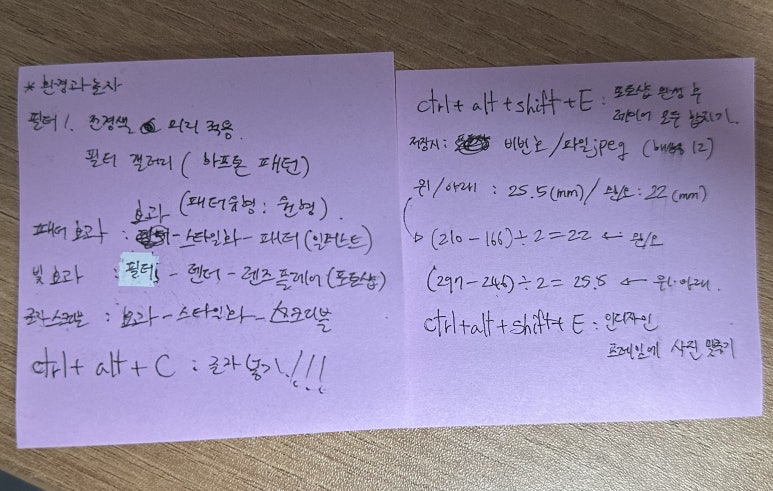 * 환경과 놀자
필터1. 전경색 미리 적용.
필터 갤러리 ( 하프톤 패턴)
(패턴유형: 원형).
패더 효과 : 효과 - 스타일화 - 패더 (일러스트)
빛 효과 : 필터 - 렌더 - 렌즈 플레어 (포토샵)
: 효과 - 스타일화 - 스크리블
ctrl + alt + C : 글자 넣기!!!!
ctrl + alt + shift + E : 포토샵 완성 후
레이어 모두 합치기.
저장시: 비번호 / 파일 jpeg ( 12)
위/아래 : 25.5(mm) / 왼/오 : 22(mm)
(210 - 166) ÷ 2 = 22 ← 왼/오
(297 - 246) ÷ 2 = 25.5 ← 위·아래.
ctrl + alt + shift + E : 인디자인
프레임에 사진 맞추기